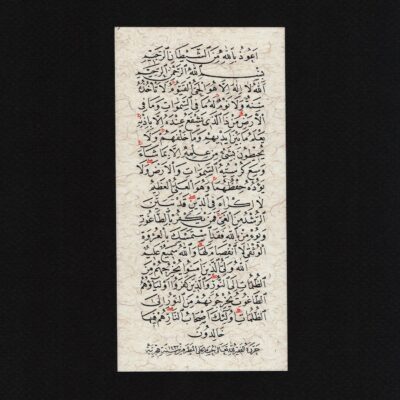 اعوذ بالله من الشيطان الرجيم
بسم الله الرحمن الرحيم
الله لا اله الا هو الحي القيوم لا تأخذه
سنة ولا نوم له ما في السموات وما في
الارض من ذا الذي يشفع عنده الا باذنه
يعلم ما بين ايديهم وما خلفهم ولا
يحيطون بشيء من علمه الا بما شاء
وسع كرسيه السموات والارض ولا
يؤده حفظهما وهو العلي العظيم
لا اكراه في الدين قد تبين
الرشد من الغي فمن يكفر بالطاغوت
ويؤمن بالله فقد استمسك بالعروة
الوثقى لا انفصام لها والله سميع عليم
الله ولي الذين امنوا يخرجهم من
الظلمات الى النور والذين كفروا اولياؤهم
الطاغوت يخرجونهم من النور الى
الظلمات اولئك اصحاب النار هم فيها
خالدون